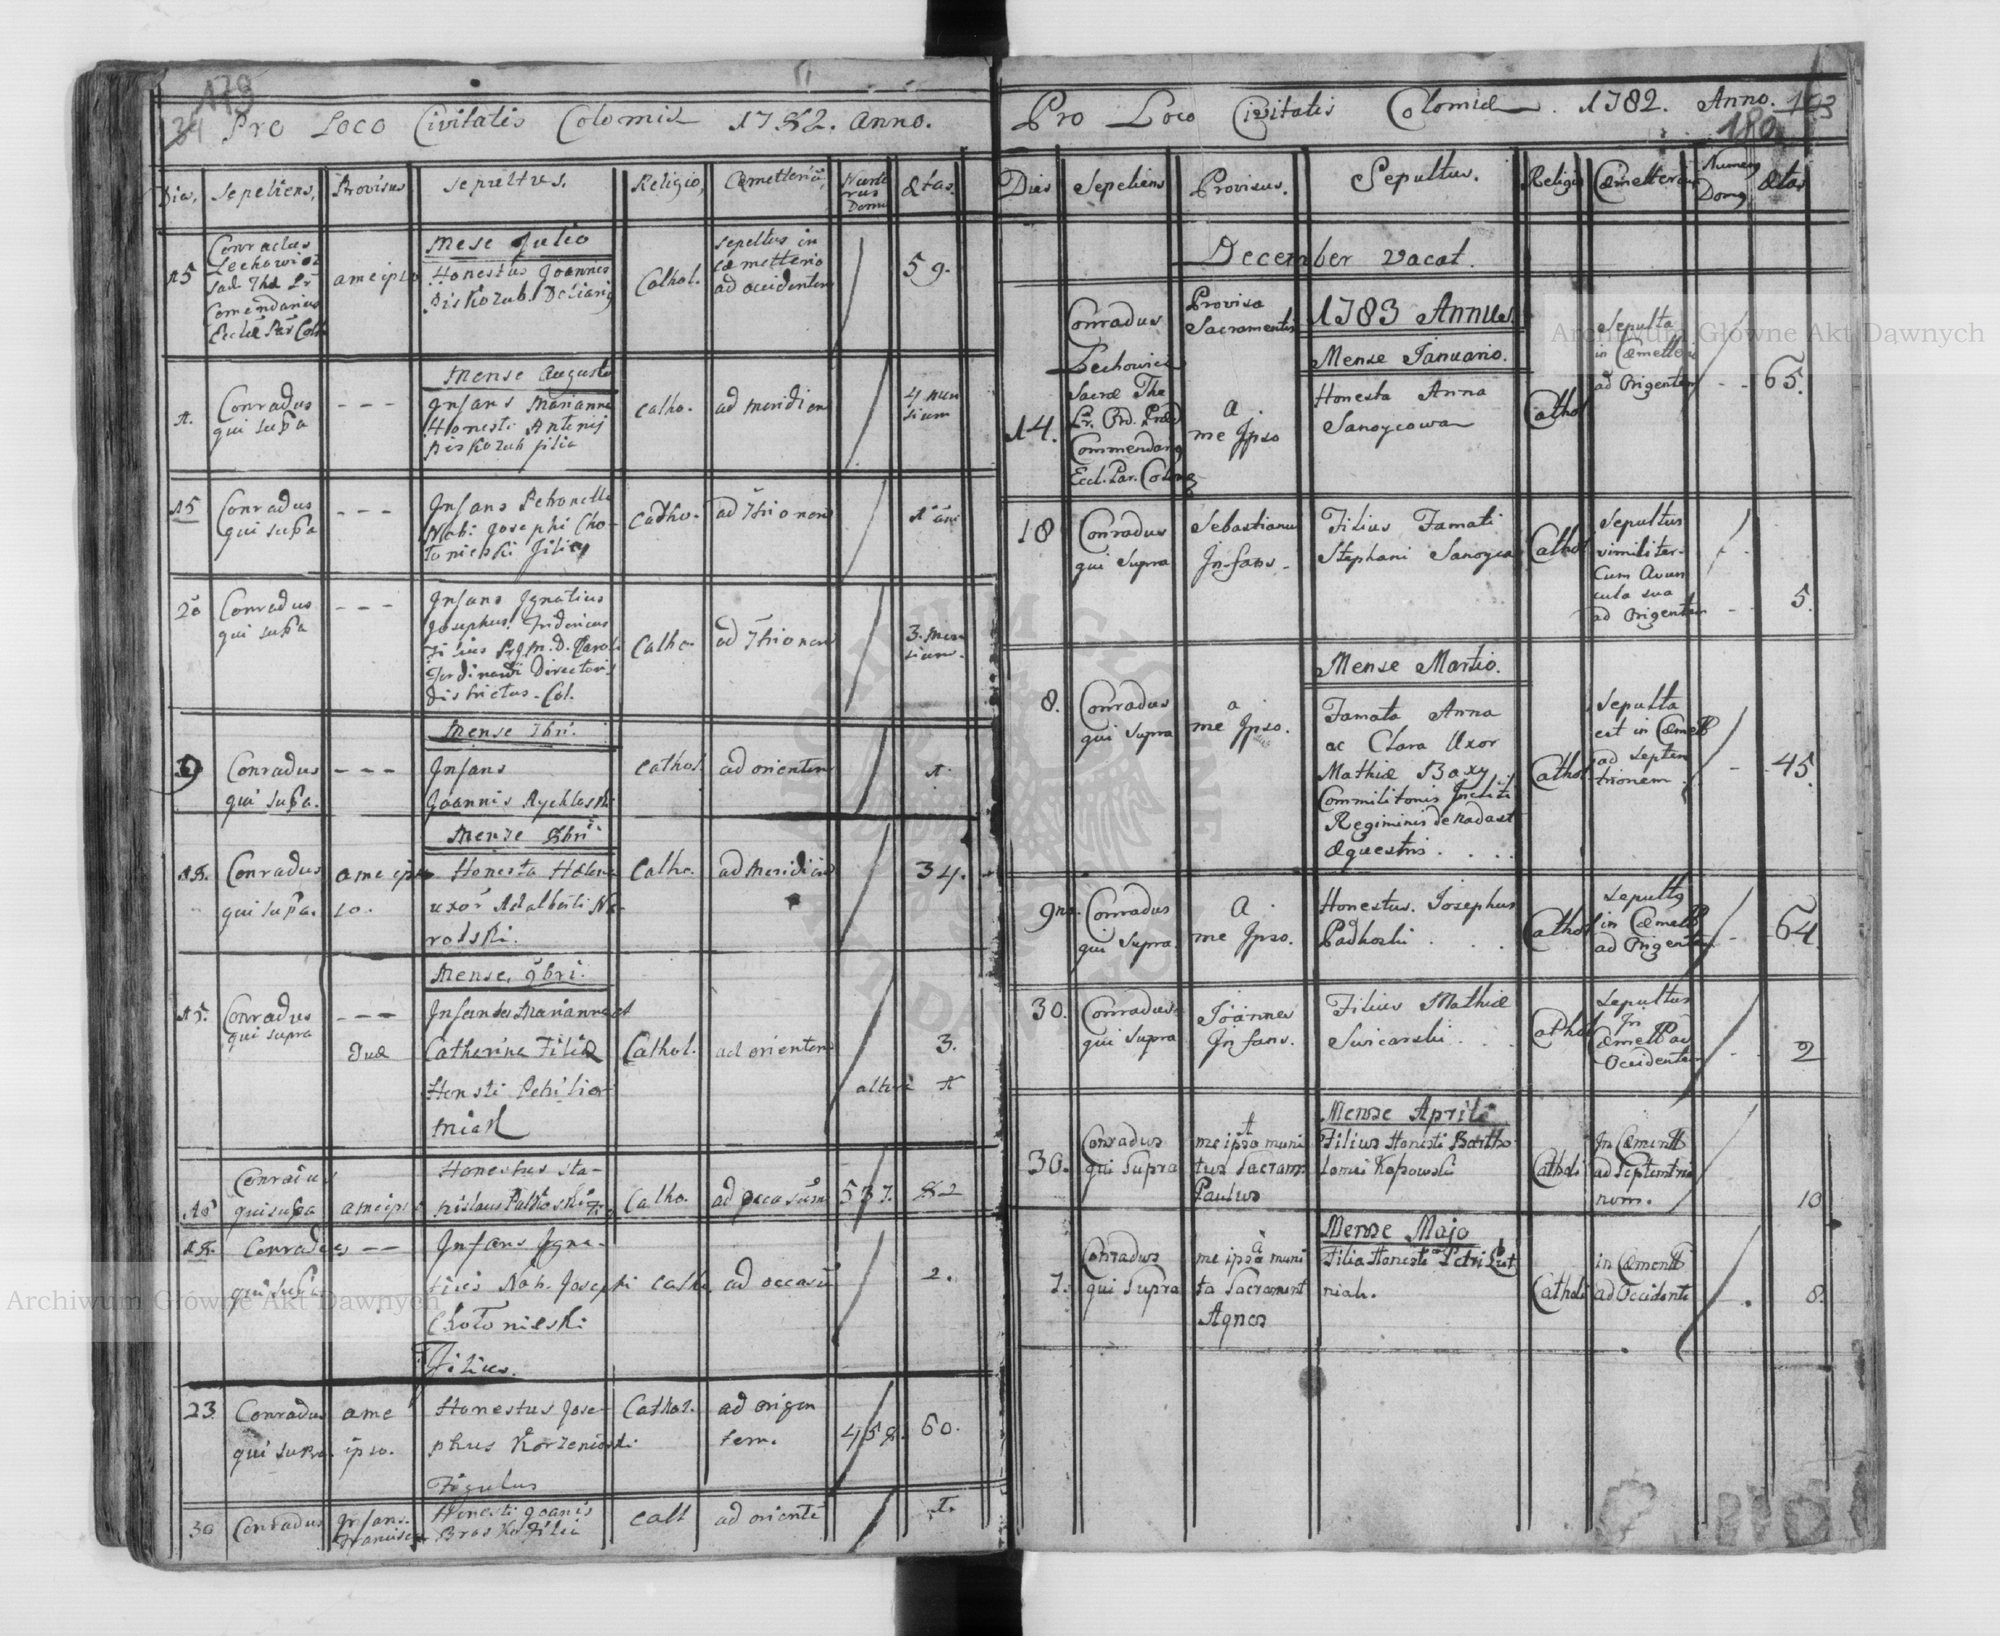 179
34 Pro Loco Civitatis Colomiæ 1782. Anno.
Dies, Sepeliens, Provisus Sepultus. Religio, Cæmetteriũ, Nume
rus
Domu Ætas.
Mese Julio
15 Conradus
Lechowicz
Sac. Thd Lr
Comendarius
Eccliæ Par Colo
ameipso
Honestus Joannes
Piskozub
Cathol.
sepeltus in
cæmetterio
ad occidentem
59.
Mense Augusto
1. Conradus
qui supa
- - -
Infans Marianna
Honesti Antonij
Piskozub filia
Catho.
ad meridiem
4 men
sium
15 Conradus
qui supa
- - -
Infans Petronella
Nob: Josephi Cho-
toniecki Filia
Catho.
ad 7trionem
1 an
20 Conradus
qui supa
- - -
Infans Ignatius
Josephus Fridericus
Filius M. D. Caroli
Ferdinandi Directoris
Districtus. Col.
Catho.
ad 7trionem
3. men
sium.
Mense 7bri.
9 Conradus
qui supa.
- - -
Infans
Joannis Rychloski
Cathol.
ad orientem
1.
Mense 8bri
18. Conradus
qui supa.
ame ip
so.
Honesta Helena
uxor Adalberti No-
rolski.
Catho.
ad meridiem
34.
Mense, 9bri.
15. Conradus
qui supra
- - -
Duæ
Infantes Marianna et
Catherina Filiæ
Honesti Petri
niak
Cathol.
ad orientem
3.
altera 1
Conradus
qui supa
ameipso
Honestus Sta-
nislaus
Catho.
ad occasum
537. 82
18. Conradus
qui supa
- - -
Infans Igna-
tius Nob. Josephi
Chotonieski
Filius.
Cath
ad occasũ
2.
23 Conradus
qui supra.
ame
ipso.
Honestus Jose-
phus Korzenioski
Figulus
Cathol.
ad origen
tem.
458. 60.
30 Conradus
Infans.
Francisca
Honesti Joanis
Filia
Cath
ad oriente
1.
Pro Loco Civitatis Colomiæ 1782. Anno. 103
180
Dies Sepeliens Provisus. Sepultus. Religio Cæmetterium Numerq
Domq Ætas
December vacat.
1783 Annus.
Mense Januario.
14. Conradus
Lechowicz
Sacræ The
Lr. Ord. Præd
Commendarq
Eccl. Par. Colom
Provisa
Sacramentis
a
me Ipso
Honesta Anna
Sanoycowa
Cathol
Sepulta
in Cæmetterio
ad Origentem
65.
18 Conradus
qui Supra
Sebastianus
Infans.
Filius Famati
Stephani Sanoyca
Cathol
Sepultus
similiter
Cum Avun
cula sua
ad Origentem
5.
Mense Martio.
8. Conradus
qui Supra
a
me Ipso.
Famata Anna
ac Clara Uxor
Mathiæ Baxy
Commilitonis Incliti
Regiminis de Nadast
Æquestris . . .
Cathol
Sepulta
est in Cæmett
ad Septen
trionem
45.
9na. Conradus
qui Supra
a
me Ipso.
Honestus. Josephus
Padhorski . . .
Cathol
Sepultq
in Cæmett
ad Origentem
64.
30. Conradus
qui Supra
Joannes
Infans.
Filius Mathiæ
Suicarski . . .
Cathol
Sepultus
In
Cæmett ad
Occidentem
2
Mense Aprili
30. Conradus
qui Supra
a
me ipso muni
tus Sacram
Paulus
Filius Honesti Bartho
lomei Kopowski
Catholi
In Cæmett
ad Septentrio
nem.
10
Mense Majo
7. Conradus
qui Supra
a
me ipso muni
ta Sacrament
Agnes
Filia Honesti Petri Lut
niak.
Catholi
in Cæmett
ad Occidente
8.
Archiwum Główne Akt Dawnych
Archiwum Główne Akt Dawnych